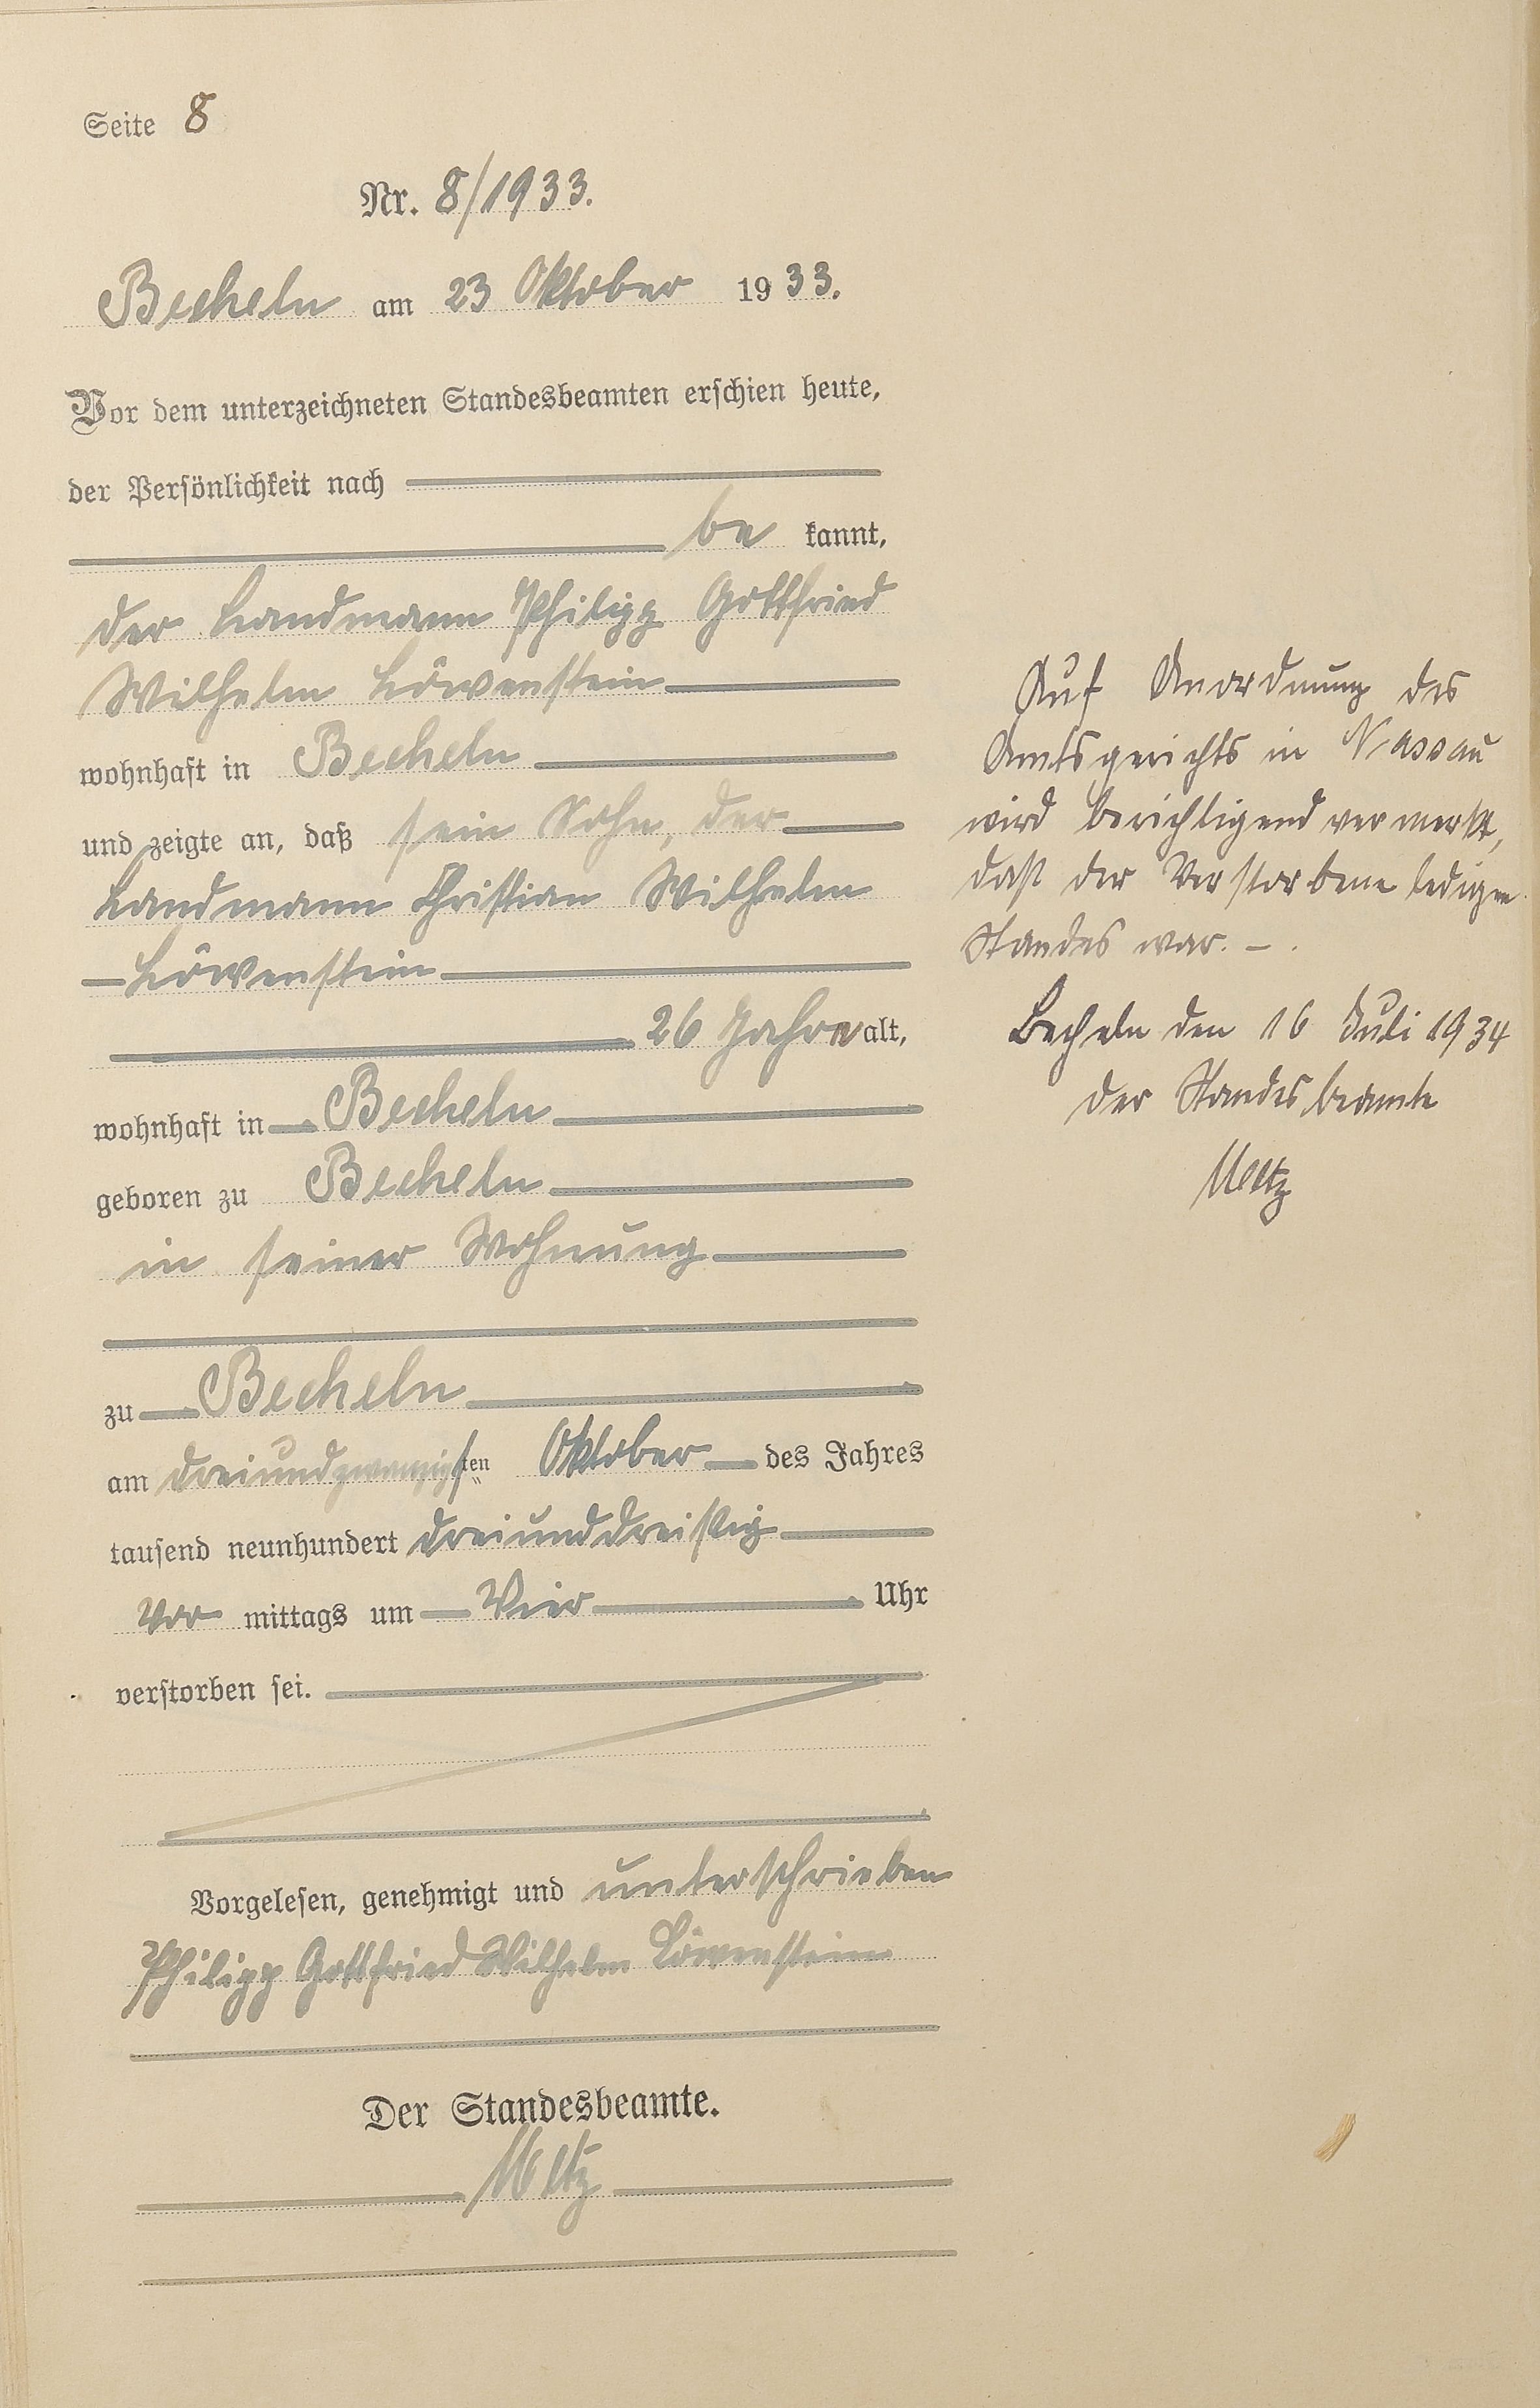 Seite 8
Nr. 8/1933.
Becheln am 23 Oktober 1933.
Vor dem unterzeichneten Standesbeamten erschien heute,
der Persönlichkeit nach
be kannt,
der Landmann Philipp Gottfried
Wilhelm Löwenstein
wohnhaft in Becheln
und zeigte an, daß sein Sohn, der
Landmann Christian Wilhelm
Löwenstein
26 Jahre alt,
wohnhaft in Becheln
geboren zu Becheln
in seiner Wohnung
zu Becheln
am dreiundzwanzigsten Oktober des Jahres
tausend neunhundert dreiunddreißig
Vor mittags um Vier Uhr
verstorben sei.
Vorgelesen, genehmigt und unterschrieben
Philipp Gottfried Wilhelm Löwenstein
Der Standesbeamte.
Metz
Auf Anordnung des
Amtsgerichts in Nassau
wird berichtigend vermerkt,
daß der Verstorbene ledigen
Standes war. -.
Becheln den 16 Juli 1934
der Standesbeamte
Metz